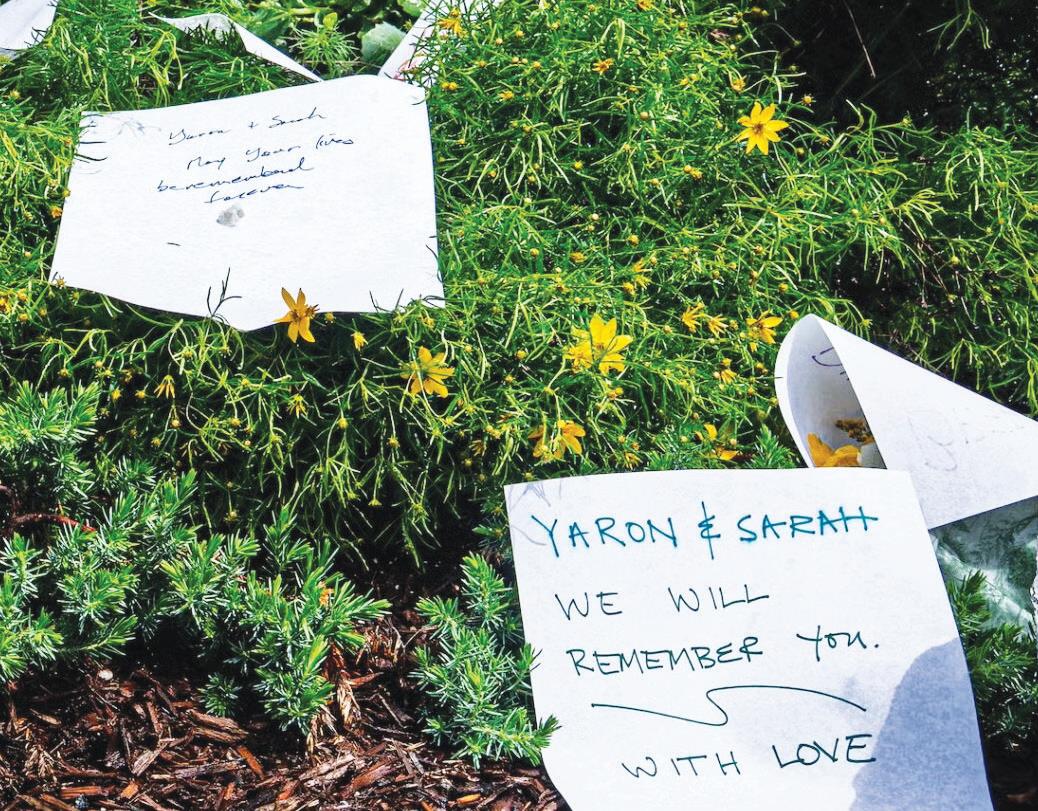 Yaron + Sarah
May your lives
be remembered
forever
YARON & SARAH
WE WILL
REMEMBER YOU.
WITH LOVE